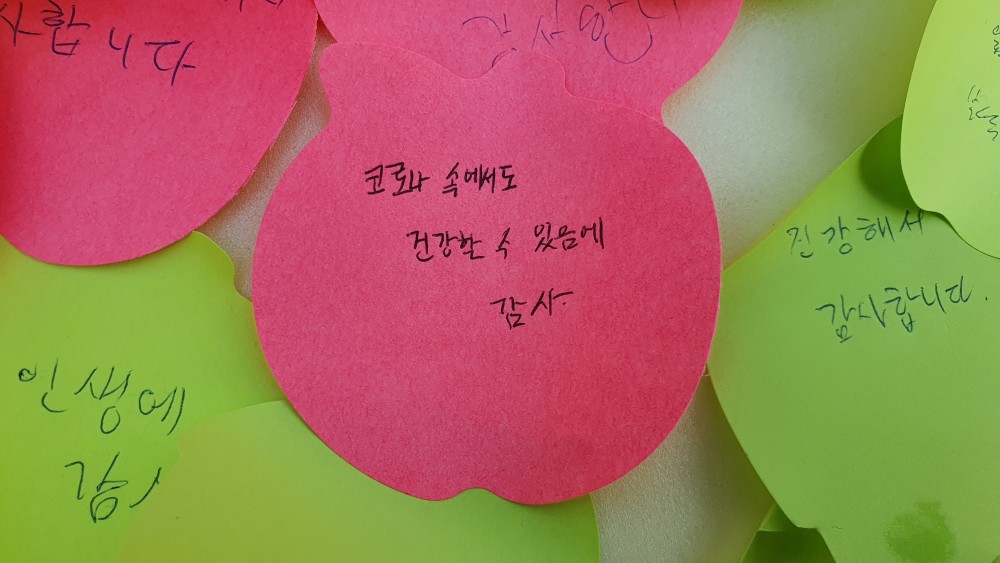 사합니다
감사합니
코로나 속에서도
건강할 수 있음에
감사.
건강해서
감사합니다.
인생에
감사